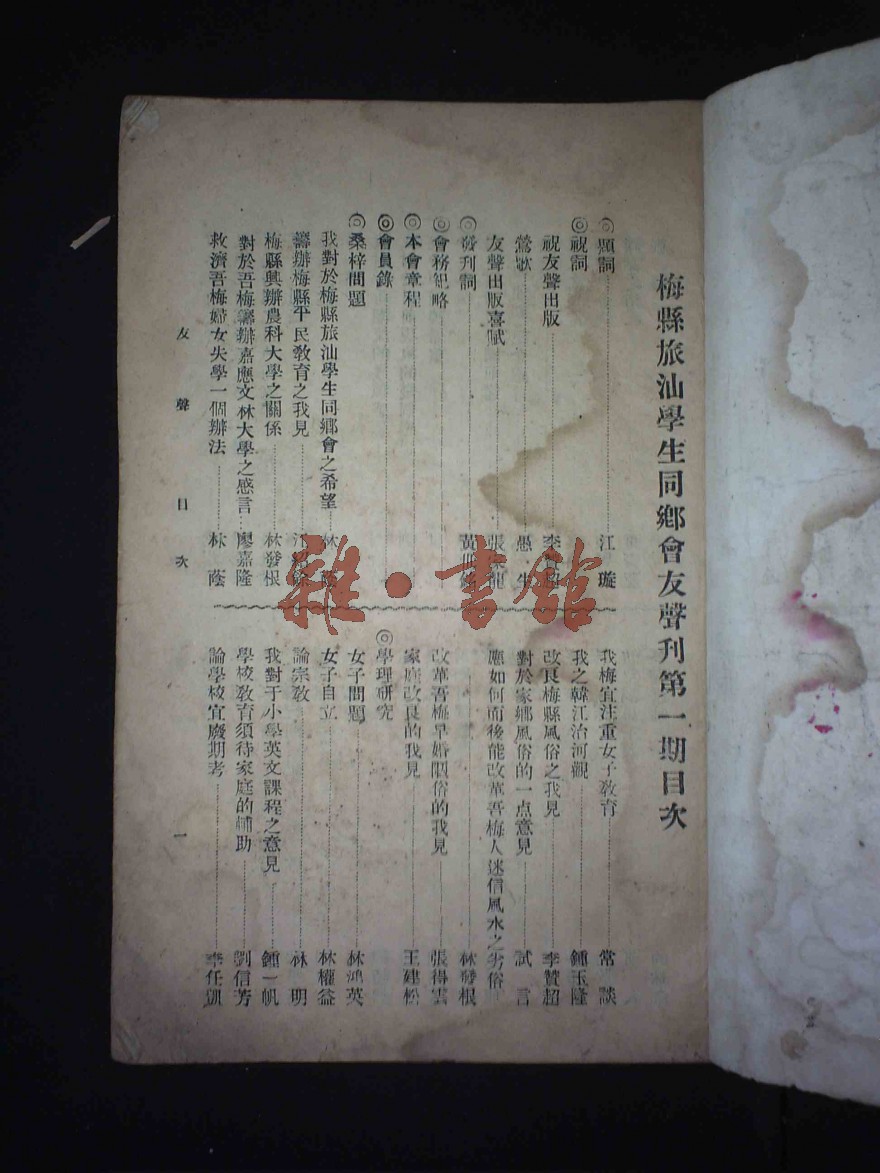 梅縣旅汕學生同鄉會友聲刊第一期目次
◎題詞 江璇
◎祝詞
祝友聲出版 李
鶯歌 愚生
友聲出版喜賦 張 龍
◎發刊詞 黃
◎會務紀略
◎本會章程
◎會員錄
◎桑梓問題
我對於梅縣旅汕學生同鄉會之希望 林
籌辦梅縣平民教育之我見 江
梅縣興辦農科大學之關係 林發根
對於吾梅籌辦嘉應文林大學之感言 廖嘉隆
救濟吾梅婦女失學一個辦法 林蔭
我梅宜注重女子教育 常談
我之韓江治河觀 鍾玉隆
改良梅縣風俗之我見 李贊超
對於家鄉風俗的一点意見 試言
應如何而後能改革吾梅人迷信風水之劣俗
改革吾梅早婚陋俗的我見 林發根
家庭改良的我見 張得雲
王建松
◎學理研究
女子問題 林鴻英
女子自立 林權益
論宗教 林明
我對于小學英文課程之意見 鍾一帆
學校教育須待家庭的輔助 劉信芳
論學校宜廢期考 李任凱
友聲目次 一
雜·書館